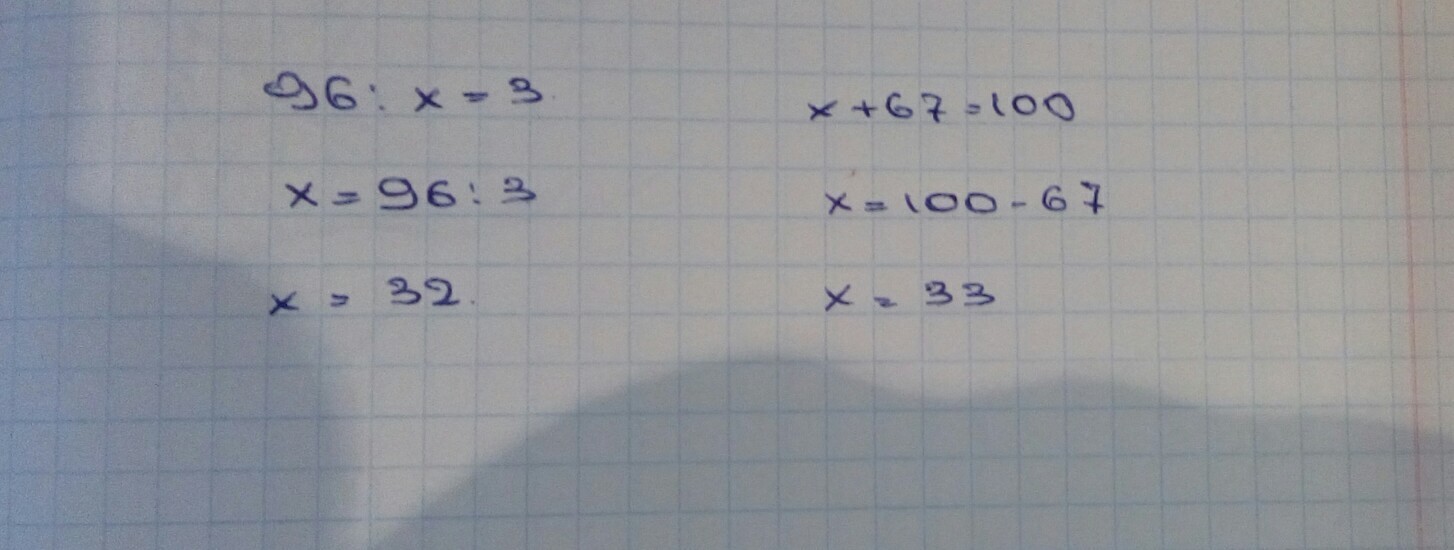 96 : x = 3
x = 96 : 3
x = 32
x + 67 = 100
x = 100 - 67
x = 33